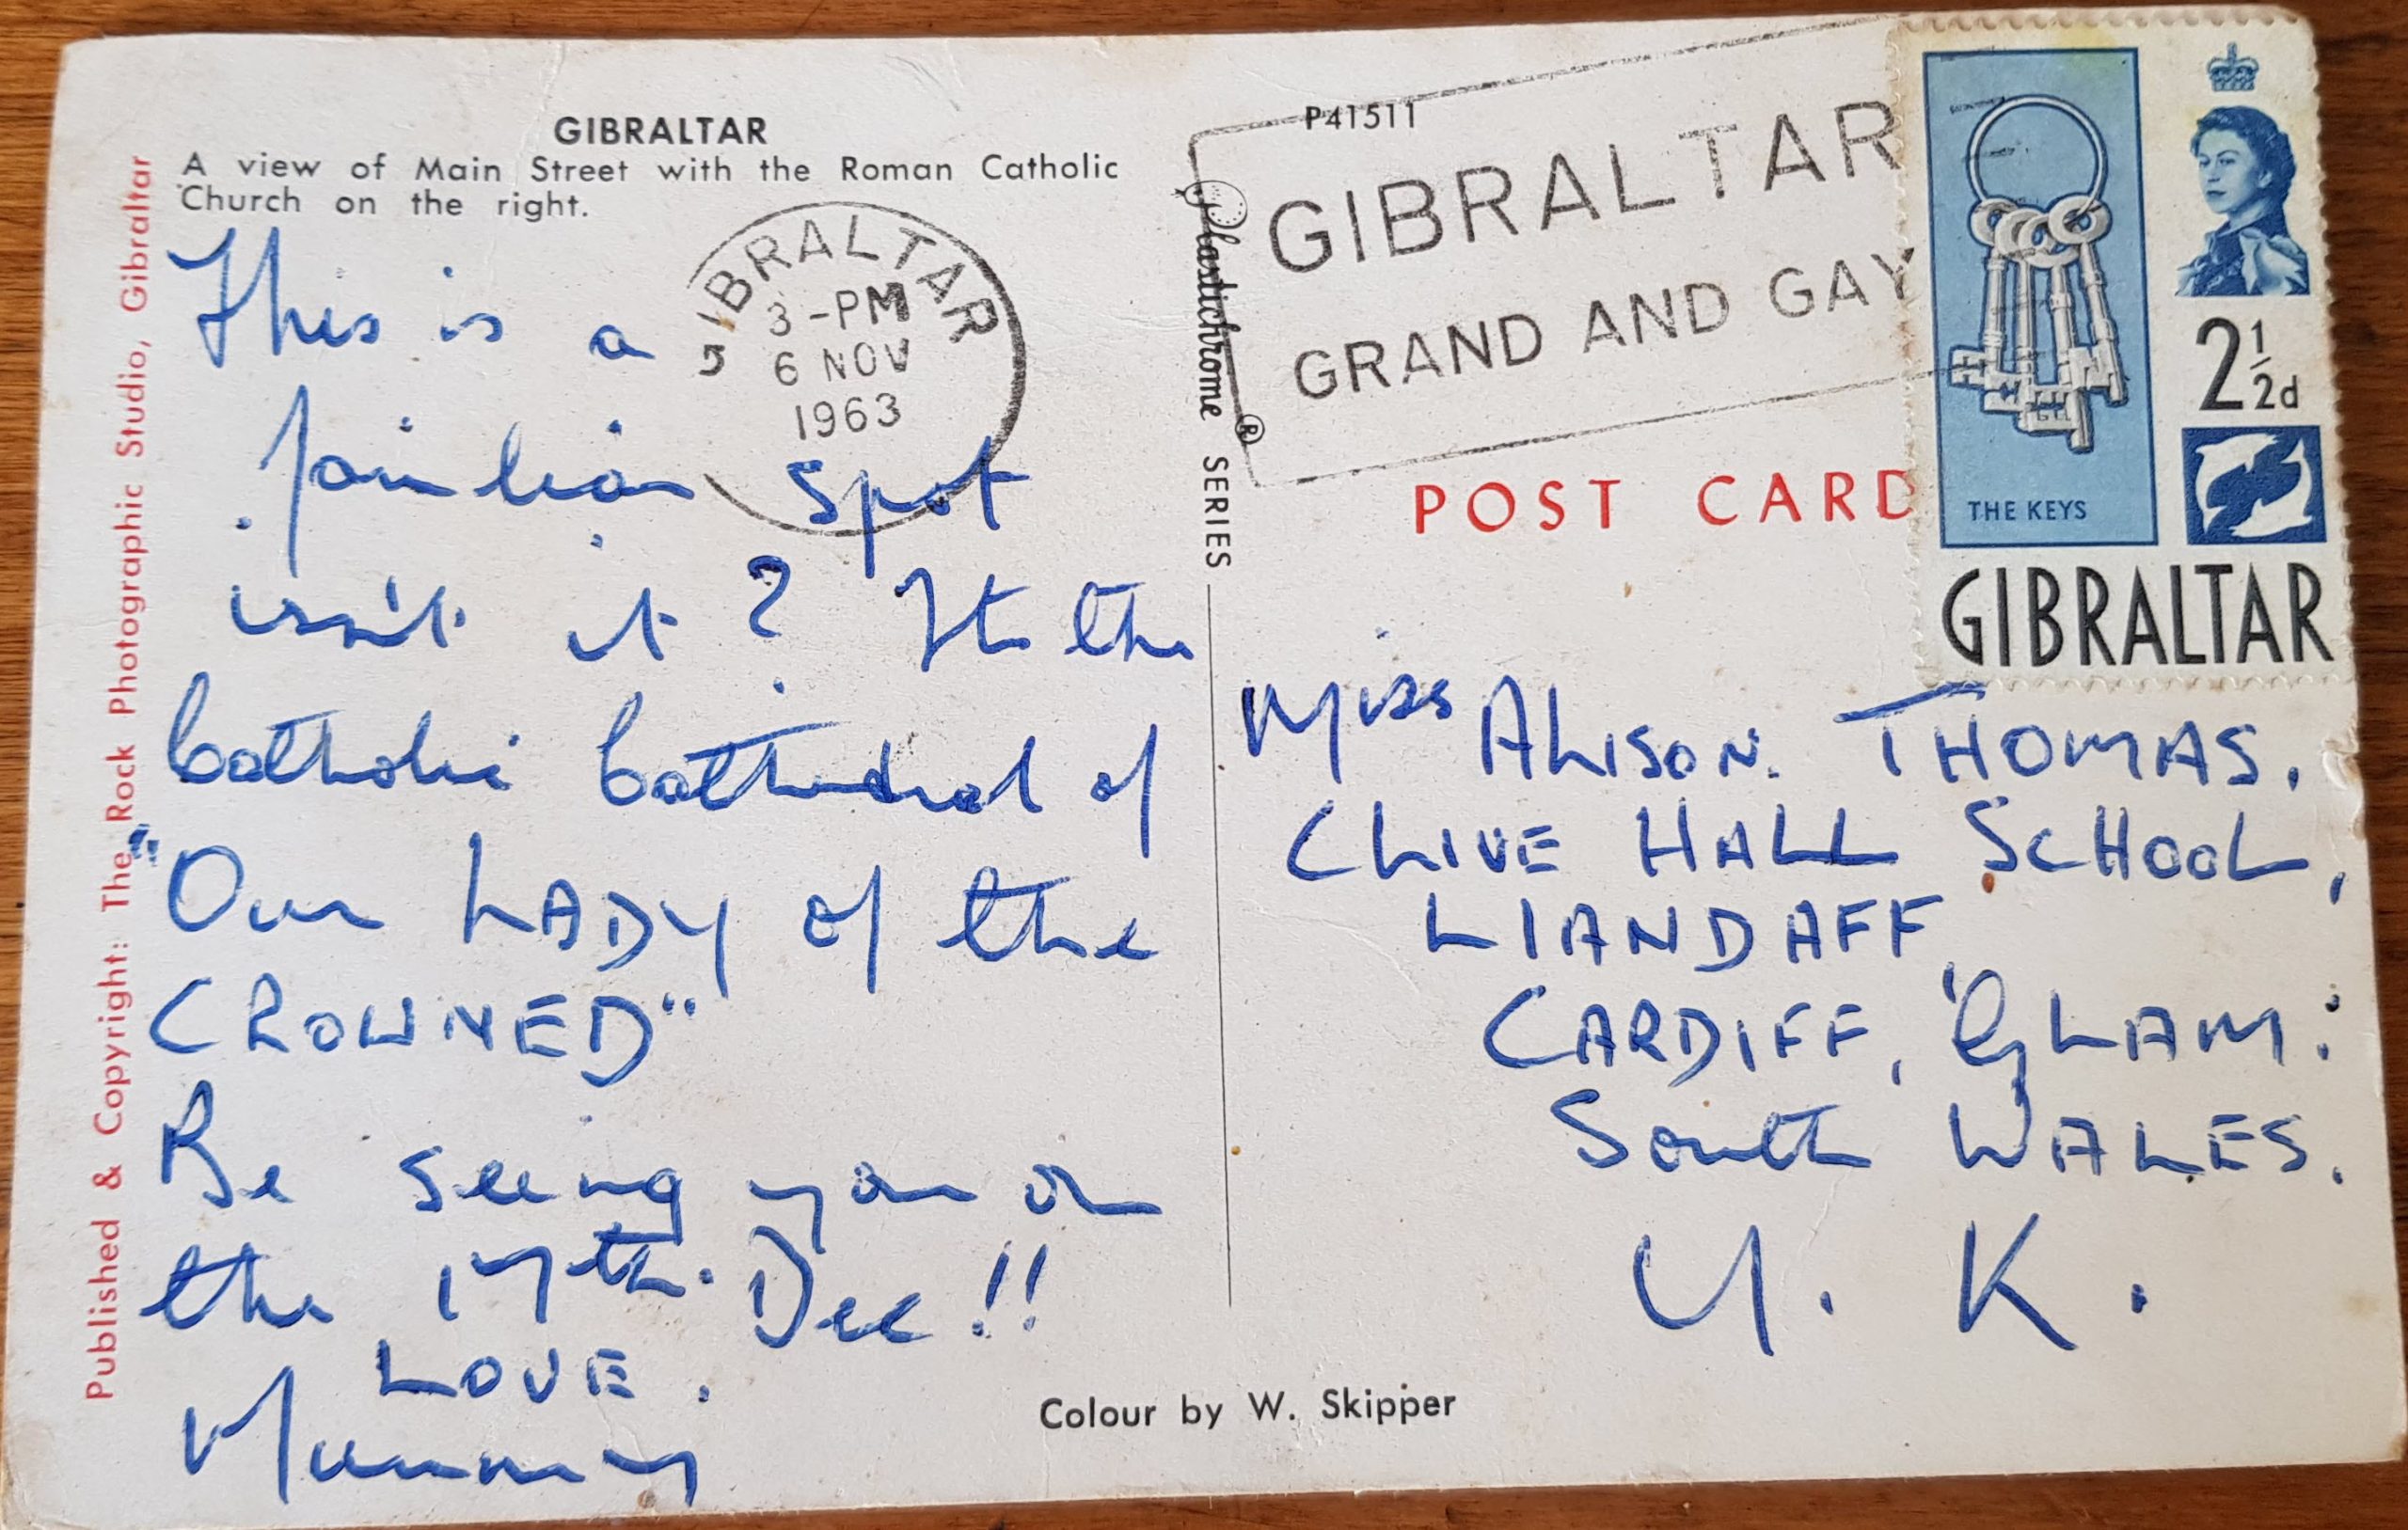 GIBRALTAR
A view of Main Street with the Roman Catholic
Church on the right.
This is a
familiar spot
isn't it? Its the
Catholic Cathedral of
"Our LADY of the
CROWNED"
Be seeing you on
the 17th. Dec!!
LOVE.
Mummy
Published & Copyright: The Rock Photographic Studio, Gibraltar
GIBRALTAR
3-PM
6 NOV
1963
Plastichrome ® SERIES
P41511
GIBRALTAR
GRAND AND GAY
POST CARD
2½d
THE KEYS
GIBRALTAR
Miss ALISON. THOMAS.
CLIVE HALL SCHOOL,
LlANDAFF,
CARDIFF, GLAM:
South WALES.
U. K.
Colour by W. Skipper